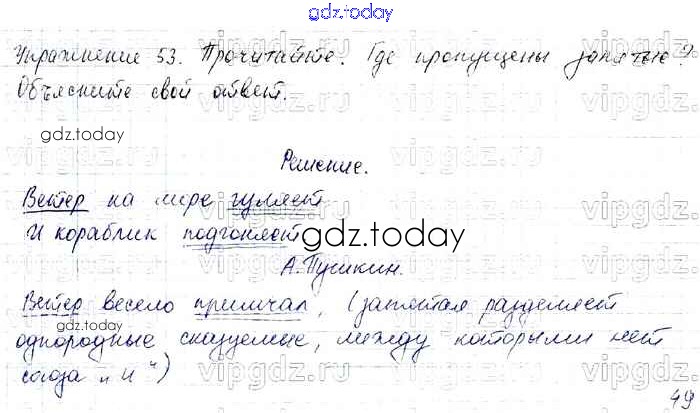 gdz.today
Упражнение 53. Прочитайте. Где пропущены запятые?
Объясните свой ответ.
gdz.today
Решение.
Ветер на море гуляет
И кораблик подгоняет
gdz.today
А. Пушкин.
Ветер весело примчал, (запятая разделяет
gdz.today
однородные сказуемые, между которыми нет
союза „и")
49
vipgdz.ru